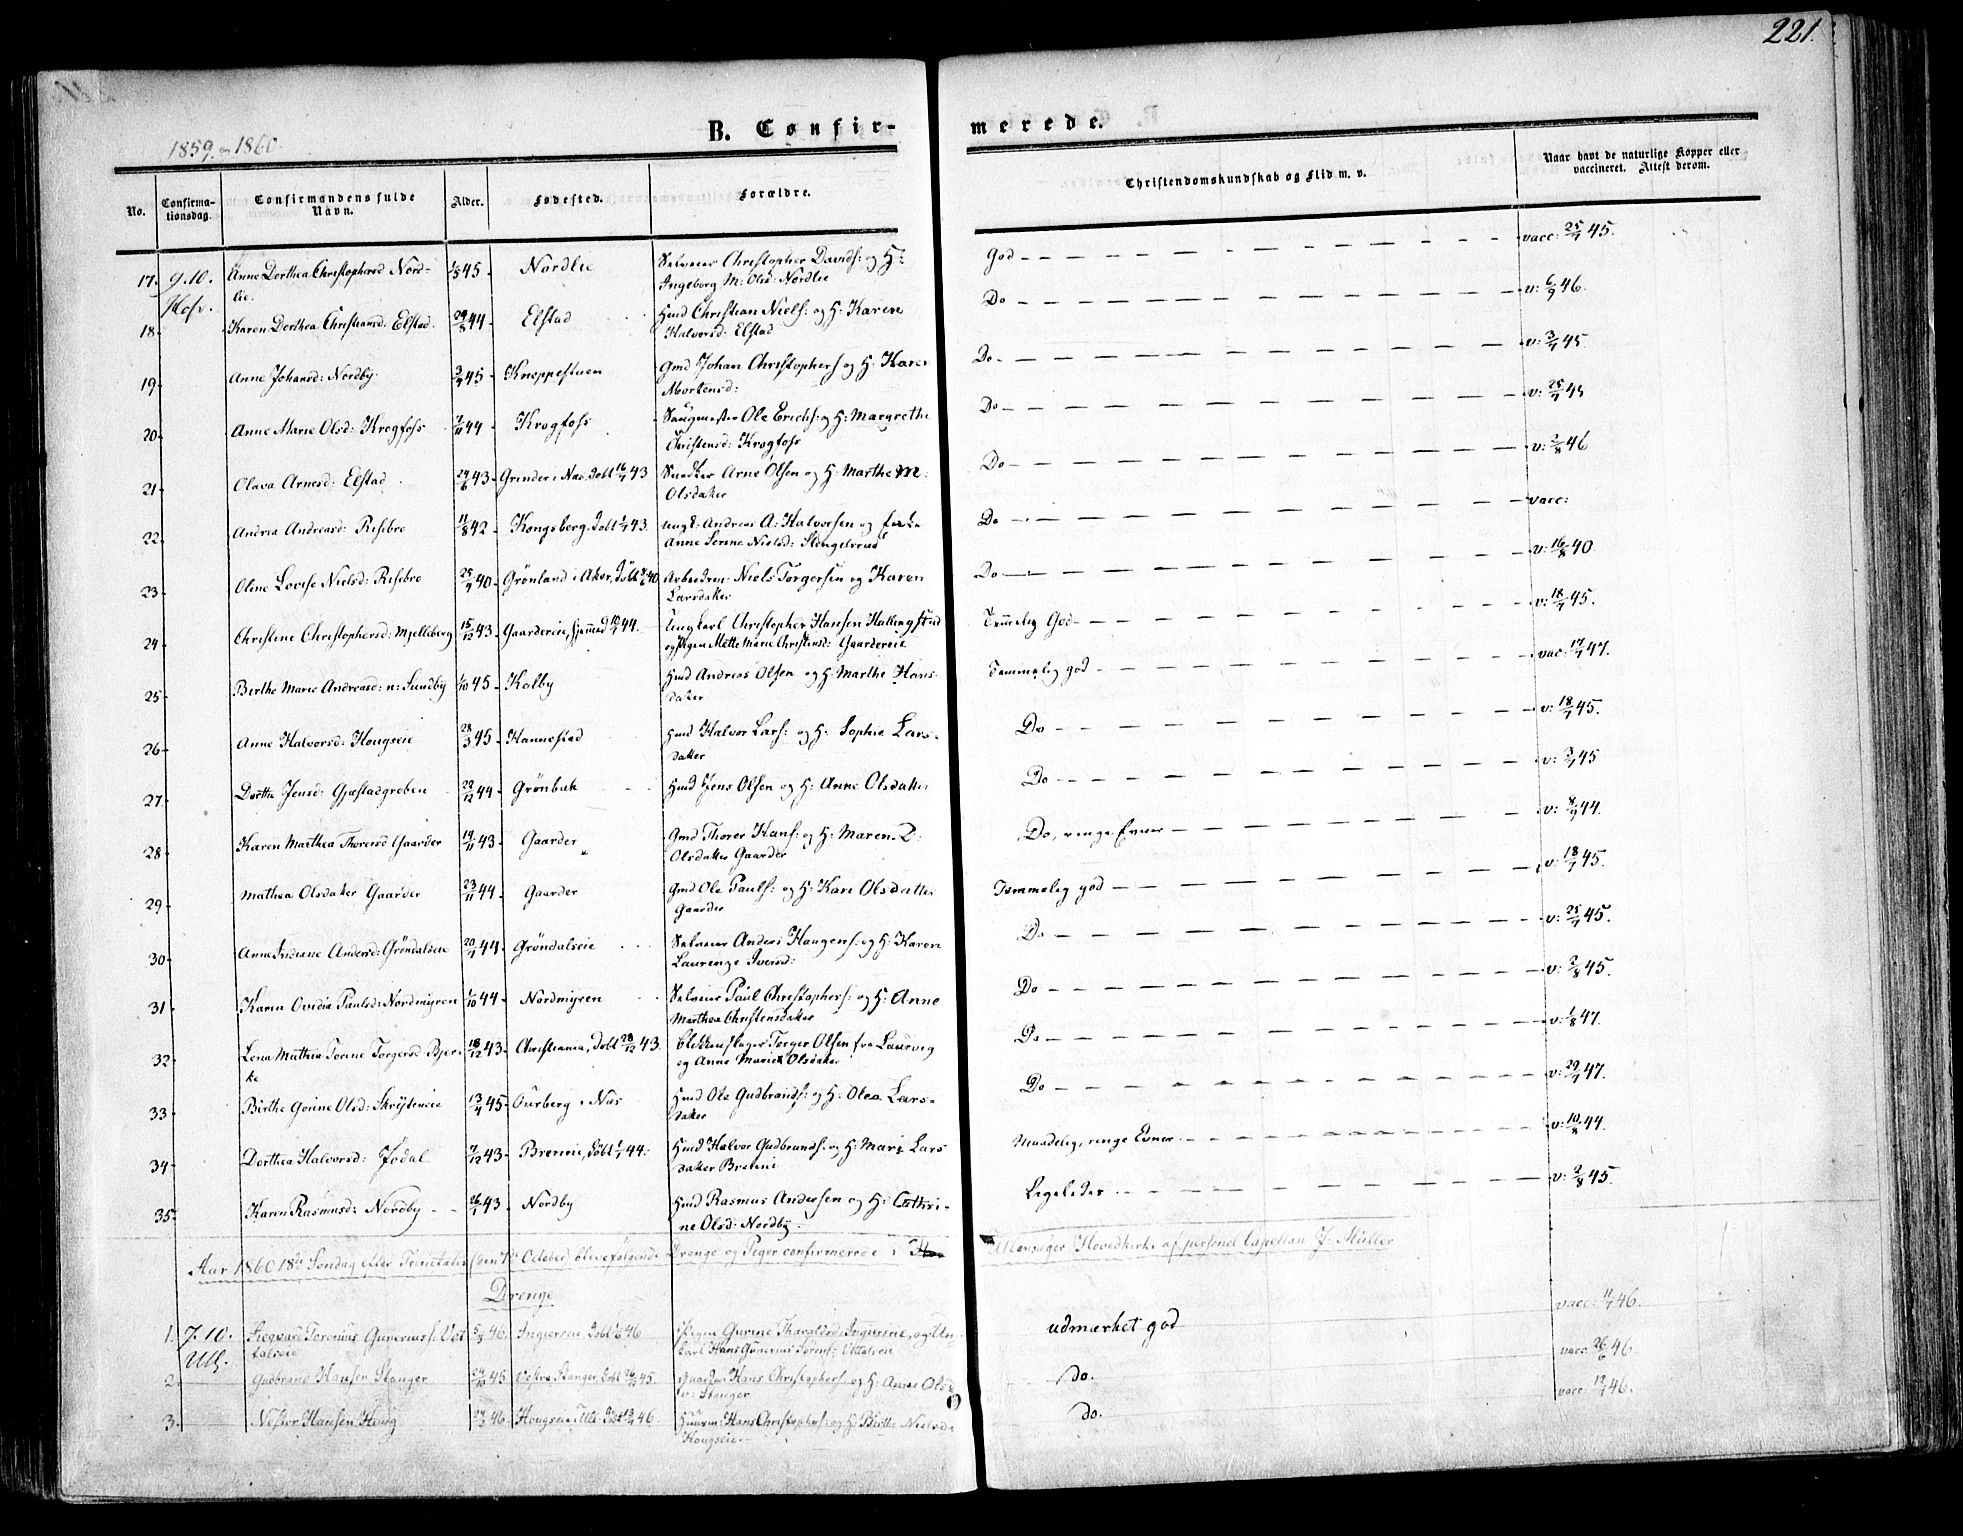 221.
B. Confirmerede.
1859. og 1860.
No. Confirmationsdag. Confirmandens fulde Navn. Alder. Fødested. Forældre. Christendomskundskab og Flid m. v. Naar havt de naturlige Kopper eller vaccineret. Attest derom.
17. 9.10. Anne Dorthea Christophersd Nordlie. 1/5 45. Nordlie Selveier Christopher Davids: og H: Ingeborg M: Olsd: Nordlie God vacc: 25/7 45.
18. Karen Dorthea Christiansd. Elstad. 29/8 44. Elstad Hmd Christian Niels: og H: Karen Halvorsd: Elstad Do v: 6/9 46.
19. Anne Johansd: Nordby. 3/2 45. Knappestuen Gmd Johan Christophers og H: Karen Mortensd: Do v: 3/7 45.
20. Anne Marie Olsd: Krogfoss 7/11 44. Krogfoss Saugmester Ole Erichs: og H: Margrethe Christensd: Krogfoss Do v: 25/7 45
21. Olava Arnesd: Elstad 24/6 43. Grinder i Næs, Døbt 16/7 43 Snedker Arne Olsen og H: Marthe M: Olsdatter Do v: 2/8 46
22. Andrea Andreasd: Risebro 11/8 42. Kongsberg, Døbt 1/1 43. Ungk: Andreas A: Halvorsen og Anne Serine Nielsd: Do vacc:
23. Oline Lovise Nielsd: Risebro 25/4 40. Grönland i Aker, Döbt 8/6 40 Arbeidsm: Niels Torgersen og Karen Larsdatter Do v: 16/8 40.
24. Christine Christophersd: Mjelleberg 15/12 43. Gaardereie, hjemmed 10/1 44. Ungkarl Christopher Hansen og Pigen Mette Marie Christensd: Gaardereie Temmelig God v: 18/7 45.
25. Birthe Marie Andreasd: n: Sundby 1/10 45. Kolby Hmd Andreas Olsen og H: Marthe Hansdatter Temmelig god vac: 17/7 47.
26. Anne Halvorsd: Hougseie 28/3 45. Hannestad Hmd Halvor Lars: og H: Sophie Larsdatter Do v: 18/7 45.
27. Dorthe Jensd: Gjæstadgroben 22/12 44. Grönbæk Hmd Jens Olsen og H: Anne Olsdatter Do v: 3/7 45
28. Karen Marthea Thoresd Gaarder 19/11 43. Gaarder Gmd Thorer Hans: og H: Maren D: Olsdatter Gaarder Do, ringe Evner v: 8/9 44.
29. Mathea Olsdatter Gaarder 23/11 44. Gaarder Gmd Ole Pauls: og H: Kari Olsdatter Gaarder Temmelig god v: 18/7 45.
30. Anne Indiane Andersd: Gröndalseie 20/1 44. Gröndalseie Selveier Anders Haagens: og H: Karen Laurenze Iversd: Do v: 25/7 45.
31. Karen Ovidia Paulsd: Nordmyren 1/10 44. Nordmyren Selveier Paul Christophers: og H: Anne Marthea Christensdatter Do v: 2/8 45.
32. Lena Mathea Torine Torgersd Bjerke 18/12 43. Christiania, Døbt 28/12 43. Blikkenslager Torger Olsen fra Laurvig og Anne Marie Olsdatter Do v: 1/8 47.
33. Birthe Gorine Olsd: Skrytseie 13/4 45. Ourberg i Næs Hmd Ole Gudbrands: og H: Olea Larsdatter Do v: 29/7 47.
34. Dorthea Halvorsd: Jödal 7/12 43. Brenni, Döbt 1/1 44. Hmd Halvor Gudbrands: og H: Mari Larsdatter Brenni Maadelig, ringe Evner v: 10/8 44.
35. Karen Rasmusd: Nordby 26/1 43. Nordby Hmd Rasmus Andersen og H: Cathrine Olsd: Nordby. Ligeledes v: 2/8 45.
Aar 1860 18de Søndag efter Trinitatis (den 7de October) bleve følgende Drenge og Piger confirmerede i Ullensager Hovedkirke af personel Capellan J: Müller
Drenge
1. 7.10. Ull. 5/8 46. Ingierseie Døbt 1/6 46 Pigen Gurine Tharaldsd: Ingierseie, og Ungkarl Hans Gunerius Sørens: udmærket god vacc: 11/7 46.
2. Gudbrand Hansen Stanger 24/10 45. Vestre Stanger, Døbt 26/12 45. Gaardm: Hans Christophers: og H: Anne Olsd: v: Stanger do. vacc: 26/6 46.
3. Nestor Hansen Houg 24/3 46. Hougseie, Ull: Døbt 13/4 46. Huusm: Hans Christophers: og H: Birthe Nielsd: Hougseie do. vacc: 12/7 46.